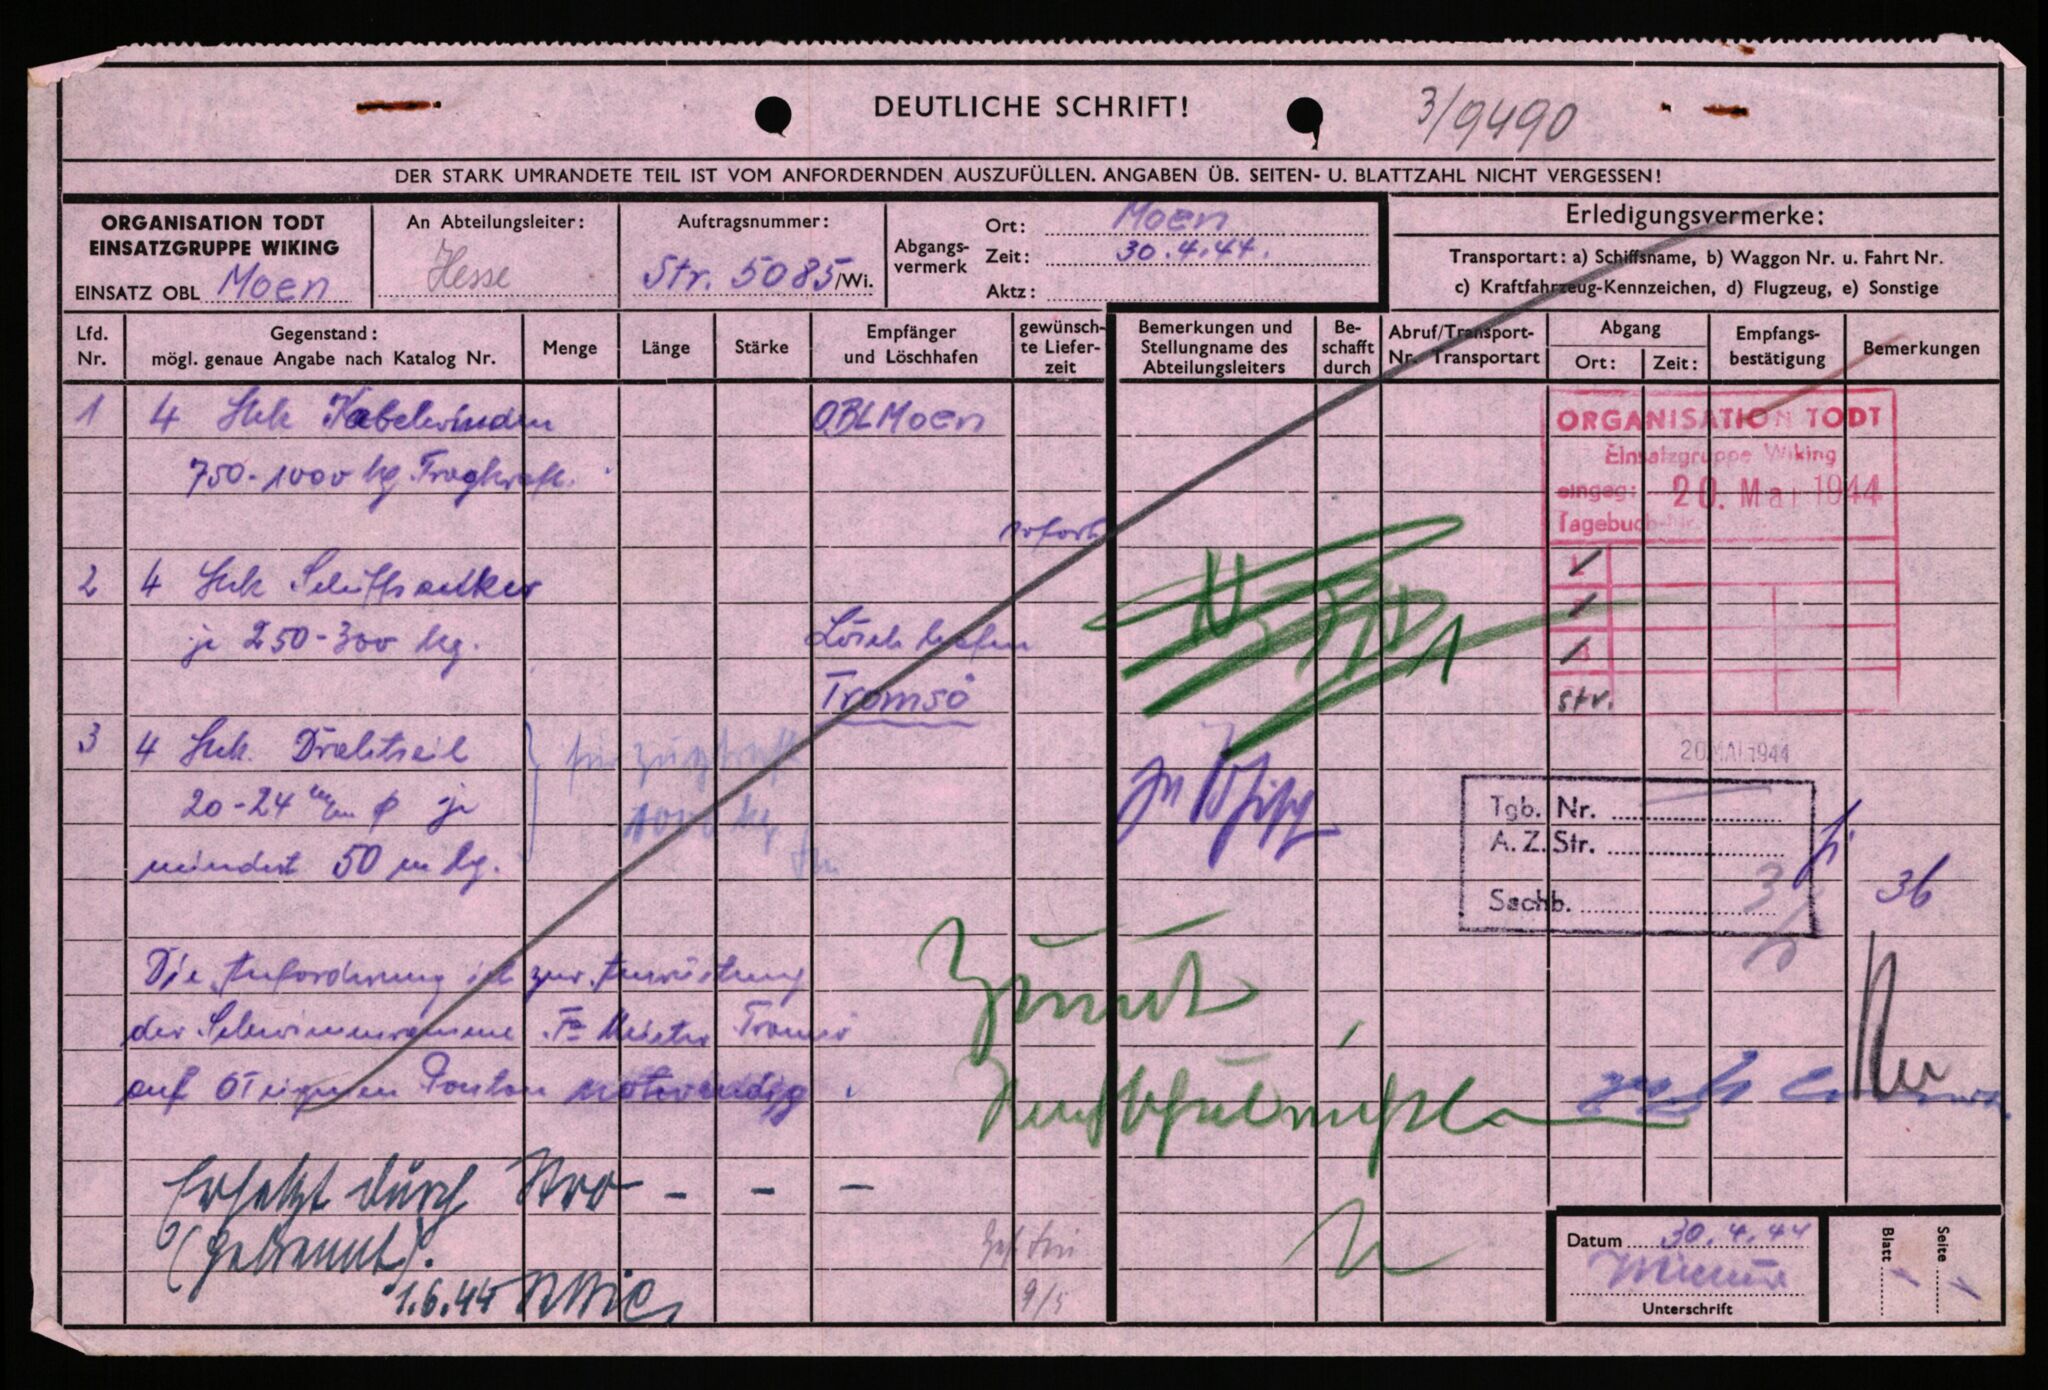 DEUTLICHE SCHRIFT!
3/9490
DER STARK UMRANDETE TEIL IST VOM ANFORDERNDEN AUSZUFÜLLEN. ANGABEN ÜB. SEITEN- U. BLATTZAHL NICHT VERGESSEN!
ORGANISATION TODT
EINSATZGRUPPE WIKING
EINSATZ OBL Moen
An Abteilungsleiter:
Hesse
Auftragsnummer:
Str. 5085/Wi.
Abgangs-
vermerk
Ort: Moen
Zeit: 30.4.44.
Aktz:
Erledigungsvermerke:
Transportart: a) Schiffsname, b) Waggon Nr. u. Fahrt Nr.
c) Kraftfahrzeug-Kennzeichen, d) Flugzeug, e) Sonstige
Lfd.
Nr.
Gegenstand:
mögl. genaue Angabe nach Katalog Nr.
Menge
Länge
Stärke
Empfänger
und Löschhafen
gewünsch-
te Liefer-
zeit
Bemerkungen und
Stellungname des
Abteilungsleiters
Be-
schafft
durch
Abruf/Transport-
Nr. Transportart
Abgang
Ort:
Zeit:
Empfangs-
bestätigung
Bemerkungen
1 4 Stck Kabelwinden
750-1000 kg Tragkraft.
OBL Moen
sofort
2 4 Stck Schiffsanker
je 250-300 kg.
Löschhafen
Tromsö
3 4 Stck. Drahtseil
20-24 m/m φ je
mindest 50 m lg.
für Zugkraft
1000 kg
Die Anforderung ist zur Ausrüstung
der Schwimmramme Fa Meister Tromsö
auf OT eignen Ponton notwendig.
Ersetzt durch
1.6.44
9/5
ORGANISATION TODT
Einsatzgruppe Wiking
eingeg: 20. Mai 1944
Tagebuch-Nr.
Str.
20 MAI 1944
Tgb. Nr.
A. Z. Str.
Sachb. 3
36
Datum 30.4.44
Unterschrift
Blatt 1
Seite 1